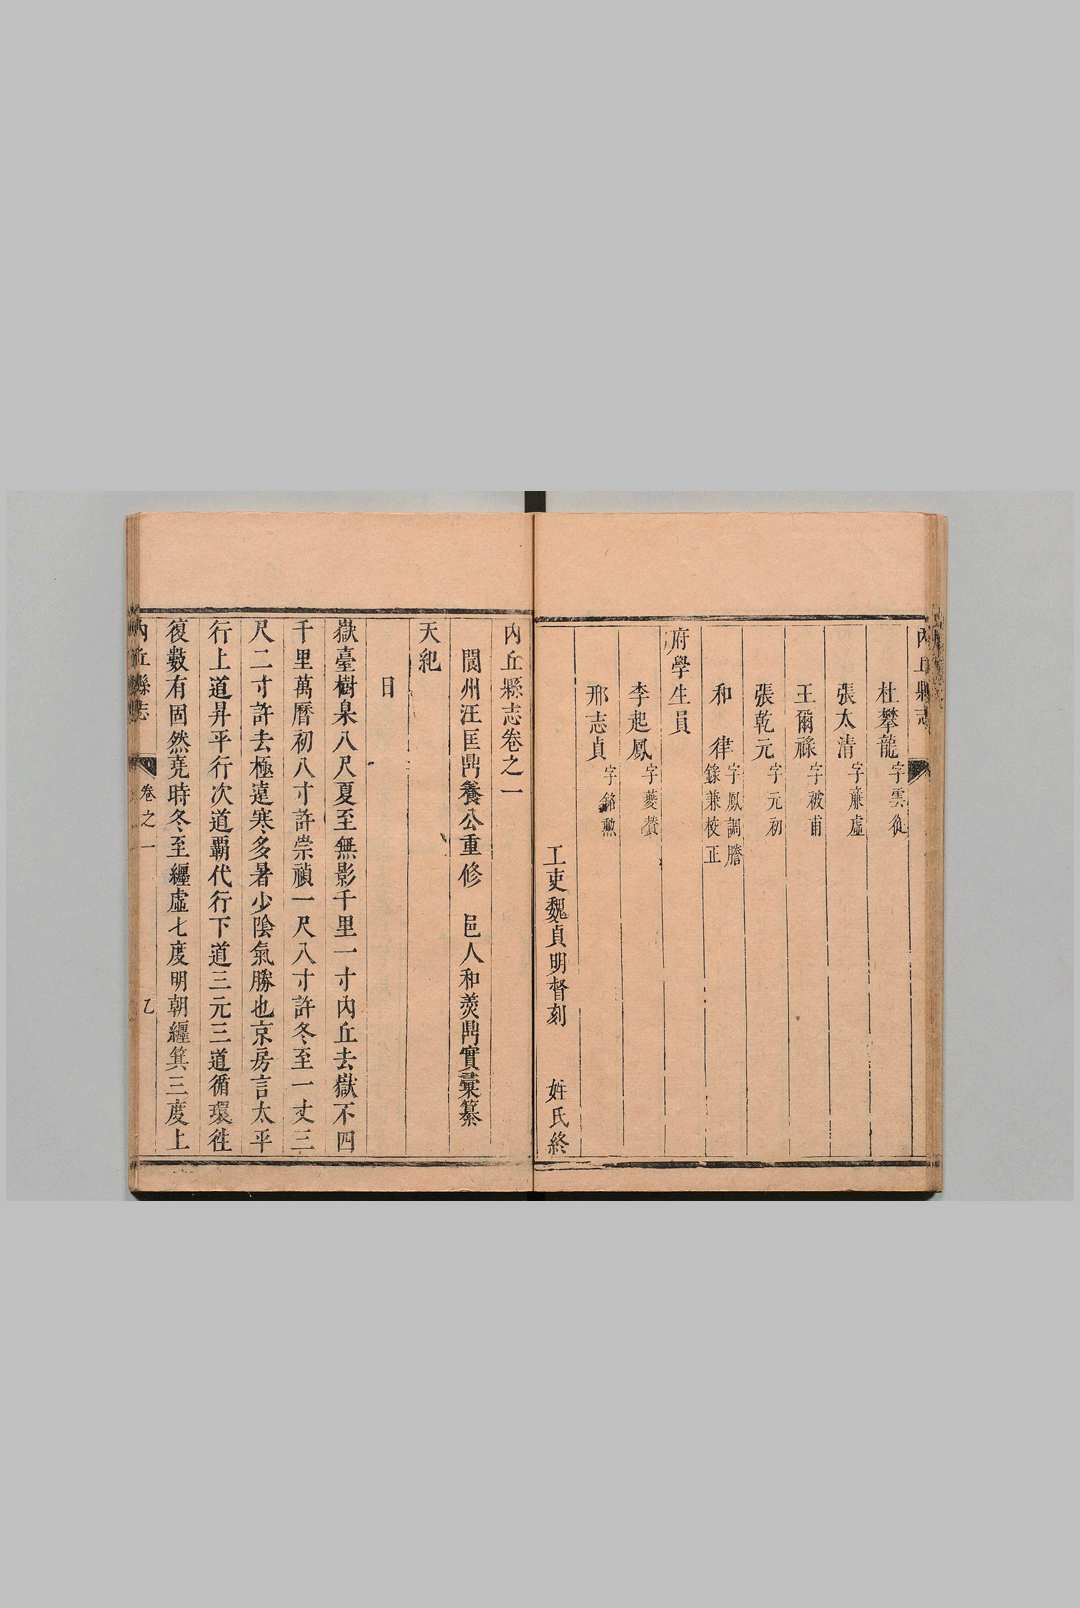 內丘縣志
杜攀龍 字雲從
張太清 字蓮虛
王爾祿 字被甫
張乾元 字元初
和律 字鳳調謄錄兼校正
府學生員
李起鳳 字夔贊
邢志貞 字銘勲
工吏魏貞明督刻 姓氏終
內丘縣志卷之一
閬州汪匡鼎養公重修 邑人和羹鼎實彚纂
天紀
日
嶽臺樹臬八尺夏至無影千里一寸內丘去嶽不四
千里萬曆初八寸許崇禎一尺八寸許冬至一丈三
尺二寸許去極遠寒多暑少陰氣勝也京房言太平
行上道昇平行次道覇代行下道三元三道循環徃
復數有固然堯時冬至纏虛七度明朝纏箕三度上
內丘縣志
卷之一
乙